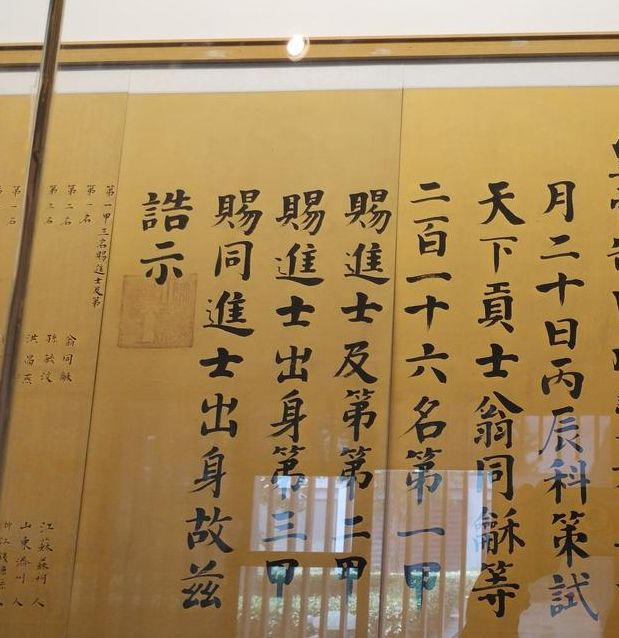 月二十日丙辰科策試
天下貢士翁同龢等
二百一十六名第一甲
賜進士及第第二甲
賜進士出身第三甲
賜同進士出身故茲
誥示
第一甲三名賜進士及第
第一名 翁同龢 江蘇蘇州 人
第二名 孫毓汶 山東濟州 人
第三名 洪昌燕
第一名